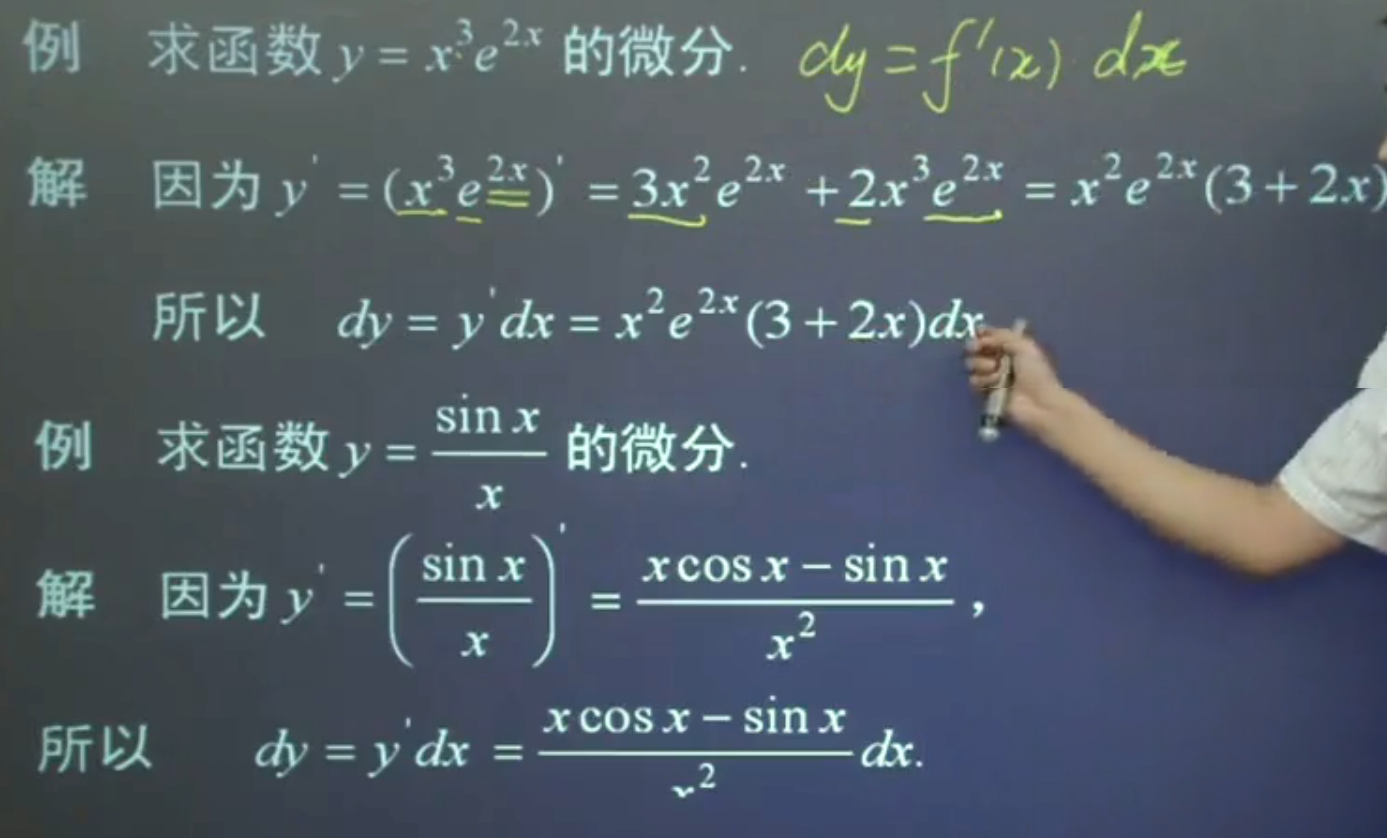 例 求函数 y = x³e²ˣ 的微分. dy = f'(x) dx
解 因为 y' = (x³e²ˣ)' = 3x²e²ˣ + 2x³e²ˣ = x²e²ˣ(3 + 2x)
所以 dy = y'dx = x²e²ˣ(3 + 2x)dx
例 求函数 y = sin x / x 的微分.
解 因为 y' = (sin x / x)' = (x cos x − sin x) / x² ,
所以 dy = y'dx = (x cos x − sin x) / x² dx.